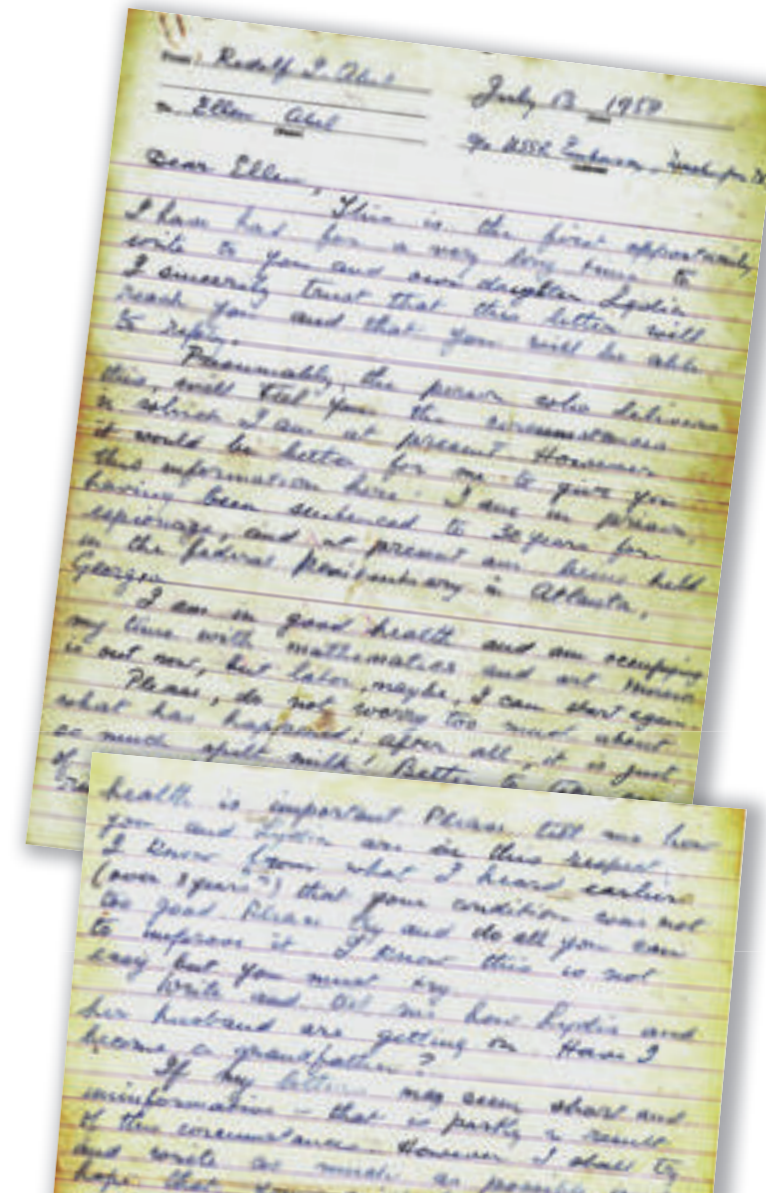 From: Rudolf I. Abel July 13 1959
To Ellen Abel
% USSR Embassy,
Dear Ellen,
This is the first opportunity
I have had for a very long time to
write to you and our daughter Lydia
I sincerely trust that this letter will
reach you and that you will be able
to reply.
Presumably, the person who delivers
this, will tell you the circumstances
in which I am at present However
it would be better for me to give you
this information here. I am in prison,
having been sentenced to 30 years for
espionage, and at present am being held
in the federal Penitentiary in Atlanta,
Georgia
I am in good health and am occupying
my time with mathematics and art Music
is out now, but later, maybe, I can start again
Please, do not worry too much about
what has happened: after all, it is just
so much spilt milk! Better to
of
health is important Please tell me how
you and Lydia are in this respect.
I know from what I heard earlier
(over 3 years) that your condition was not
too good Please try and do all you can
to improve it I know this is not
easy but you must try
Write and tell me how Lydia and
her husband are getting on. Have I
become a grandfather?
If my letters may seem short and
uninformative - that is partly a result
of the circumstances. However I shall try
and write as much as possible
hope that you